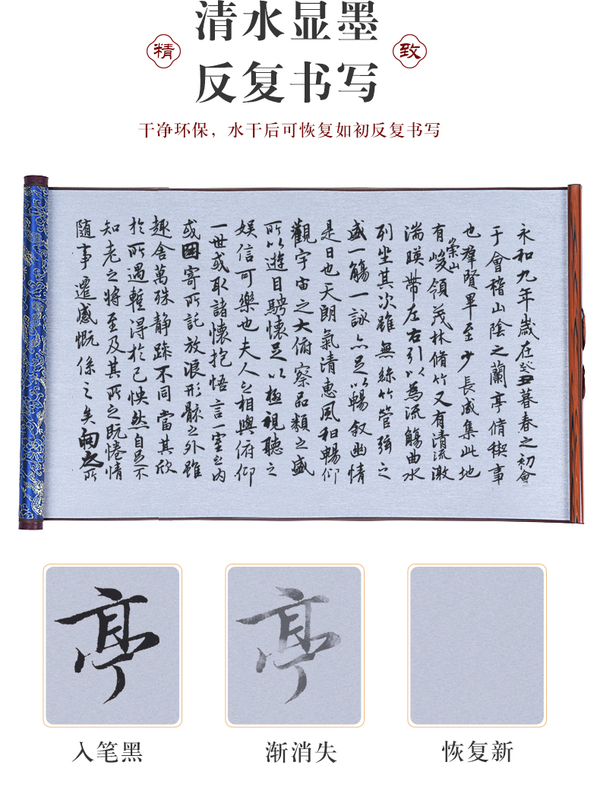 清水显墨
精
致
反复书写
干净环保，水干后可恢复如初反复书写
永和九年歲在癸丑暮春之初會
于會稽山陰之蘭亭脩稧事
也羣賢畢至少長咸集此地
有崇山峻領茂林脩竹又有清流激
湍暎帶左右引以為流觴曲水
列坐其次雖無絲竹管弦之
盛一觴一詠亦足以暢叙幽情
是日也天朗氣清惠風和暢仰
觀宇宙之大俯察品類之盛
所以遊目騁懷足以極視聽之
娱信可樂也夫人之相與俯仰
一世或取諸懷抱悟言一室之内
或因寄所託放浪形骸之外雖
趣舍萬殊静躁不同當其欣
於所遇輙得於己怏然自足不
知老之將至及其所之既惓情
隨事遷感慨係之矣向之所
亭
亭
入笔黑
渐消失
恢复新